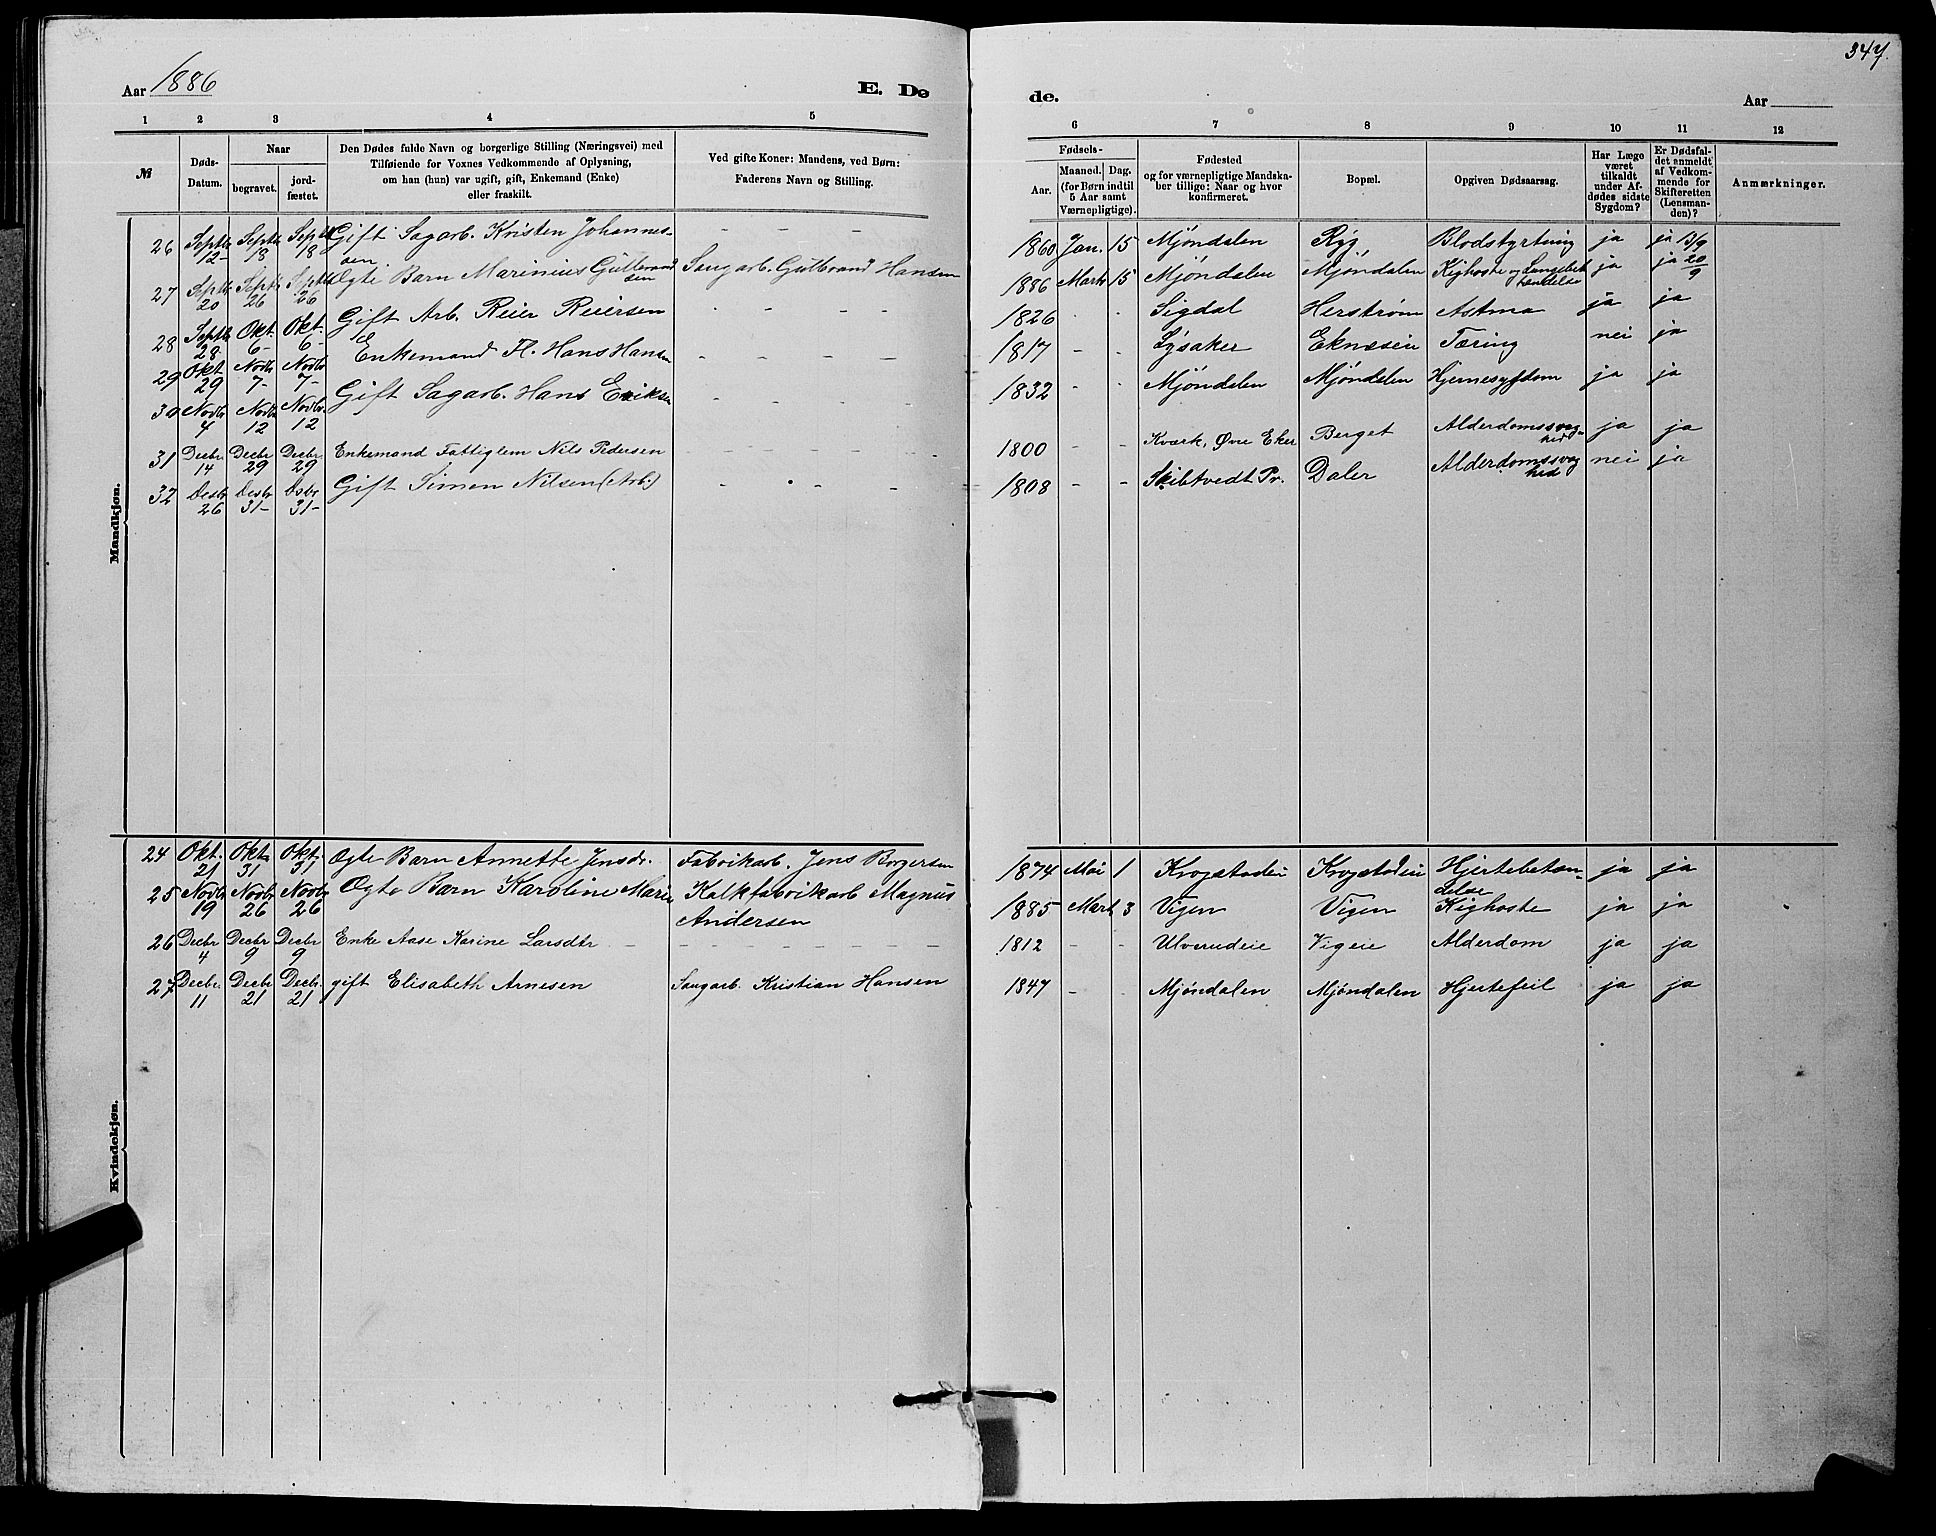 347.
Aar 1886
E. Dø
de.
Aar
1 2 3 4 5
6 7 8 9 10 11 12
№
Døds-Datum.
Naar
begravet.
jord-fæstet.
Den Dødes fulde Navn og borgerlige Stilling (Næringsvei) med
Tilføiende for Voxnes Vedkommende af Oplysning,
om han (hun) var ugift, gift, Enkemand (Enke)
eller fraskilt.
Ved gifte Koner: Mandens, ved Børn:
Faderens Navn og Stilling.
Fødsels-
Aar.
Maaned. Dag.
(for Børn indtil
5 Aar samt
Værnepligtige).
Fødested
og for værnepligtige Mandska-
ber tillige: Naar og hvor
konfirmeret.
Bopæl.
Opgiven Dødsaarsag.
Har Læge
været
tilkaldt
under Af-
dødes sidste
Sygdom?
Er Dødsfal-
det anmeldt
af Vedkom-
mende for
Skifteretten
(Lensman-
den)?
Anmærkninger.
Mandkjøn.
26 Septbr 12- Septbr 18 Septbr 18 Gift Sagarb. Kristen Johannes-sen - - - 1860 Jan. 15 Mjøndalen Ryg, Blodstyrtning ja ja 13/9
27 Septbr 20 Septbr 26 Septbr 26 Ægte Barn Marinius Gulbrandsen Saugarb. Gulbrand Hansen 1886 Marts 15 Mjøndalen Mjøndalen Kighoste og Lungebetændelse ja ja 20/9
28 Septbr 28 Okt. 6- Okt. 6- Gift Arb. Reier Reiersen - - - 1826 - - Sigdal Herstrøm Astma ja ja
29 Okt 29 Novbr 7- Novbr 7- Enkemand Fl. Hans Hansen - - - 1817 - - Lysaker Eknæseie Tæring nei ja
30 Novbr 4 Novbr 12 Novbr. 12 Gift Sagarb. Hans Eriksen - - - 1832 - - Mjøndalen Mjøndalen Hjernesygdom ja ja
31 Decbr 14 Decbr 29 Decbr 29 Enkemand Fattiglem Nils Pedersen - - - 1800 - - Kværk, Øvre Eker Berget Alderdomssvaghed ja ja
32 Desbr 26 Desbr 31- Dsbr 31- Gift Simen Nilsen (Arb.) - - - 1808 - - Skibtvedt Pr. Daler Alderdomssvaghed nei ja
Kvindekjøn.
24 Okt. 21 Okt. 31 Okt. 31 Ægte Barn Annette Jensdr. Fabrikarb. Jens Borgersen 1874 Mai 1 Krogstadeie Krogstadeie Hjertebetændelse ja ja
25 Novbr 19 Novbr 26 Novbr 26 Ægte Barn Karoline Marie Kalkfabrikarb Magnus Andersen 1885 Mart 3 Vigen Vigen Kighoste ja ja
26 Decbr 4 Decbr 9 Decbr 9 Enke Aase Karine Larsdtr - - - 1812 - - Ulverudeie Vigeie Alderdom ja ja
27 Decbr. 11 Decbr 21 Decbr. 21 gift Elisabeth Arnesen Saugarb. Kristian Hansen 1847 - - Mjøndalen Mjøndalen Hjertefeil ja ja